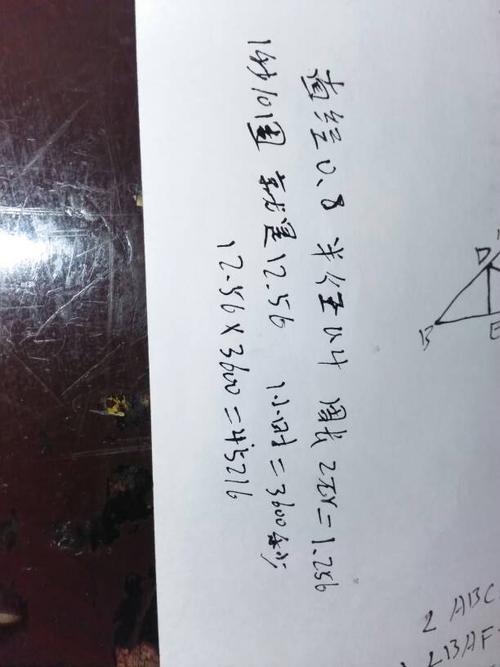 直径0.8 半径0.4 周长2πr=1.256
1秒10圈 就是12.56 1小时=3600秒
12.56×3600=45216
D
B
E
∠ABC
∠BAF